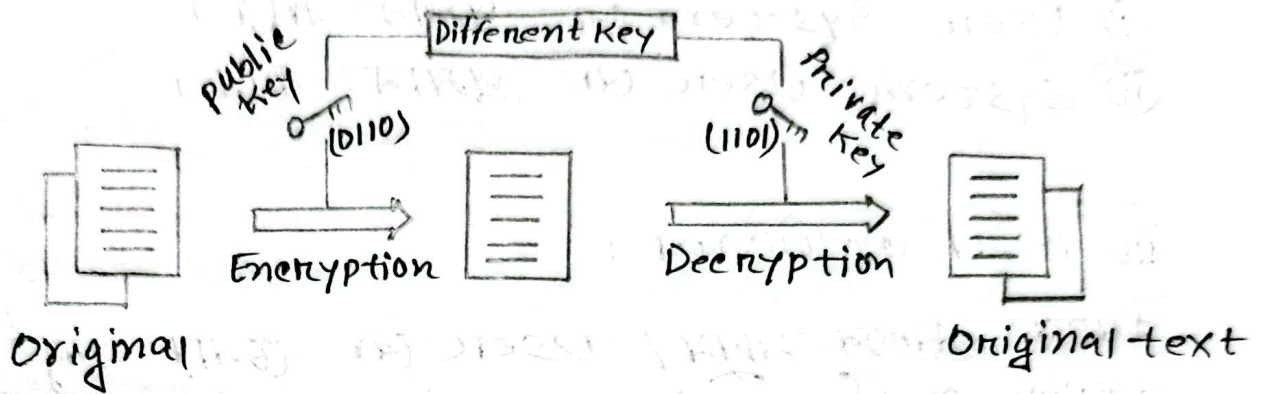 Different Key
Public
Key
(0110)
Private
Key
(1101)
Encryption
Decryption
Original
Original text